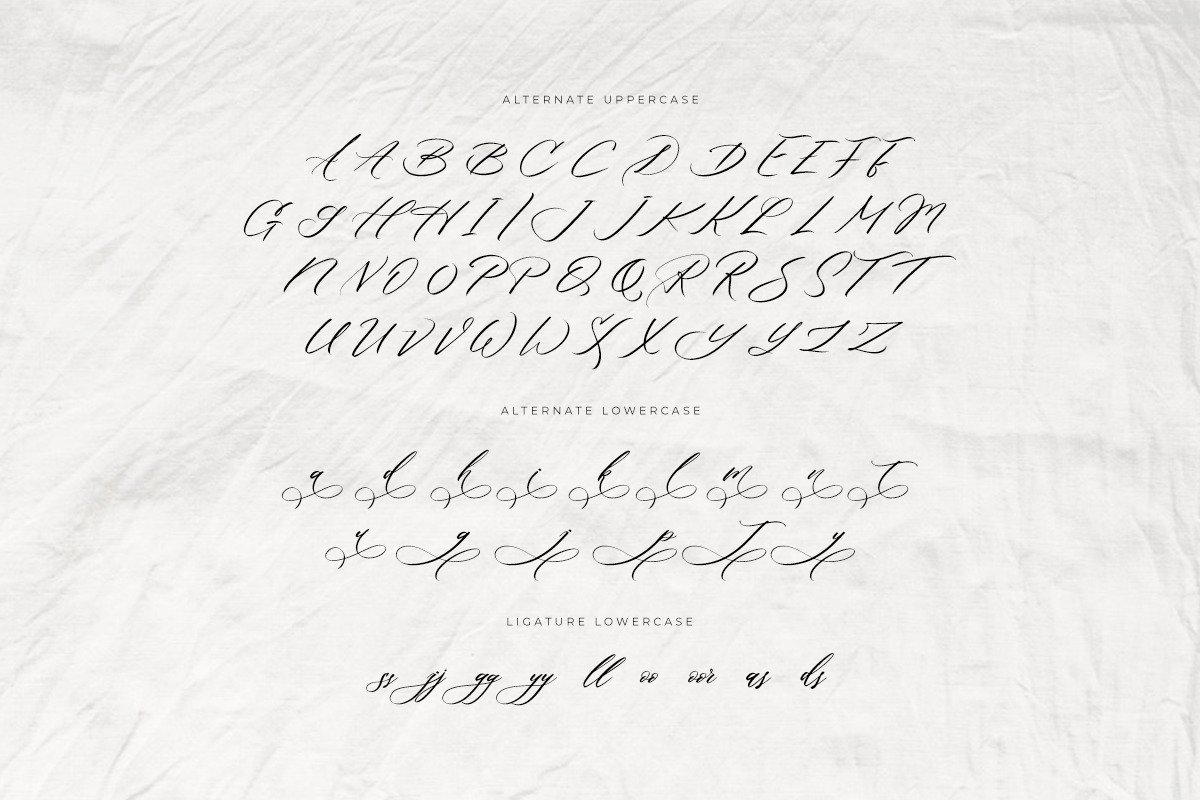 ALTERNATE UPPERCASE
A A B B C C D D E E F F
G G H H I I J J K K L L M M
N N O O P P Q Q R R S S T T
U U V V W W X X Y Y Z Z
ALTERNATE LOWERCASE
a d h i k l m n t
u g j p t y
LIGATURE LOWERCASE
ss jj gg yy ll oo oor as ds